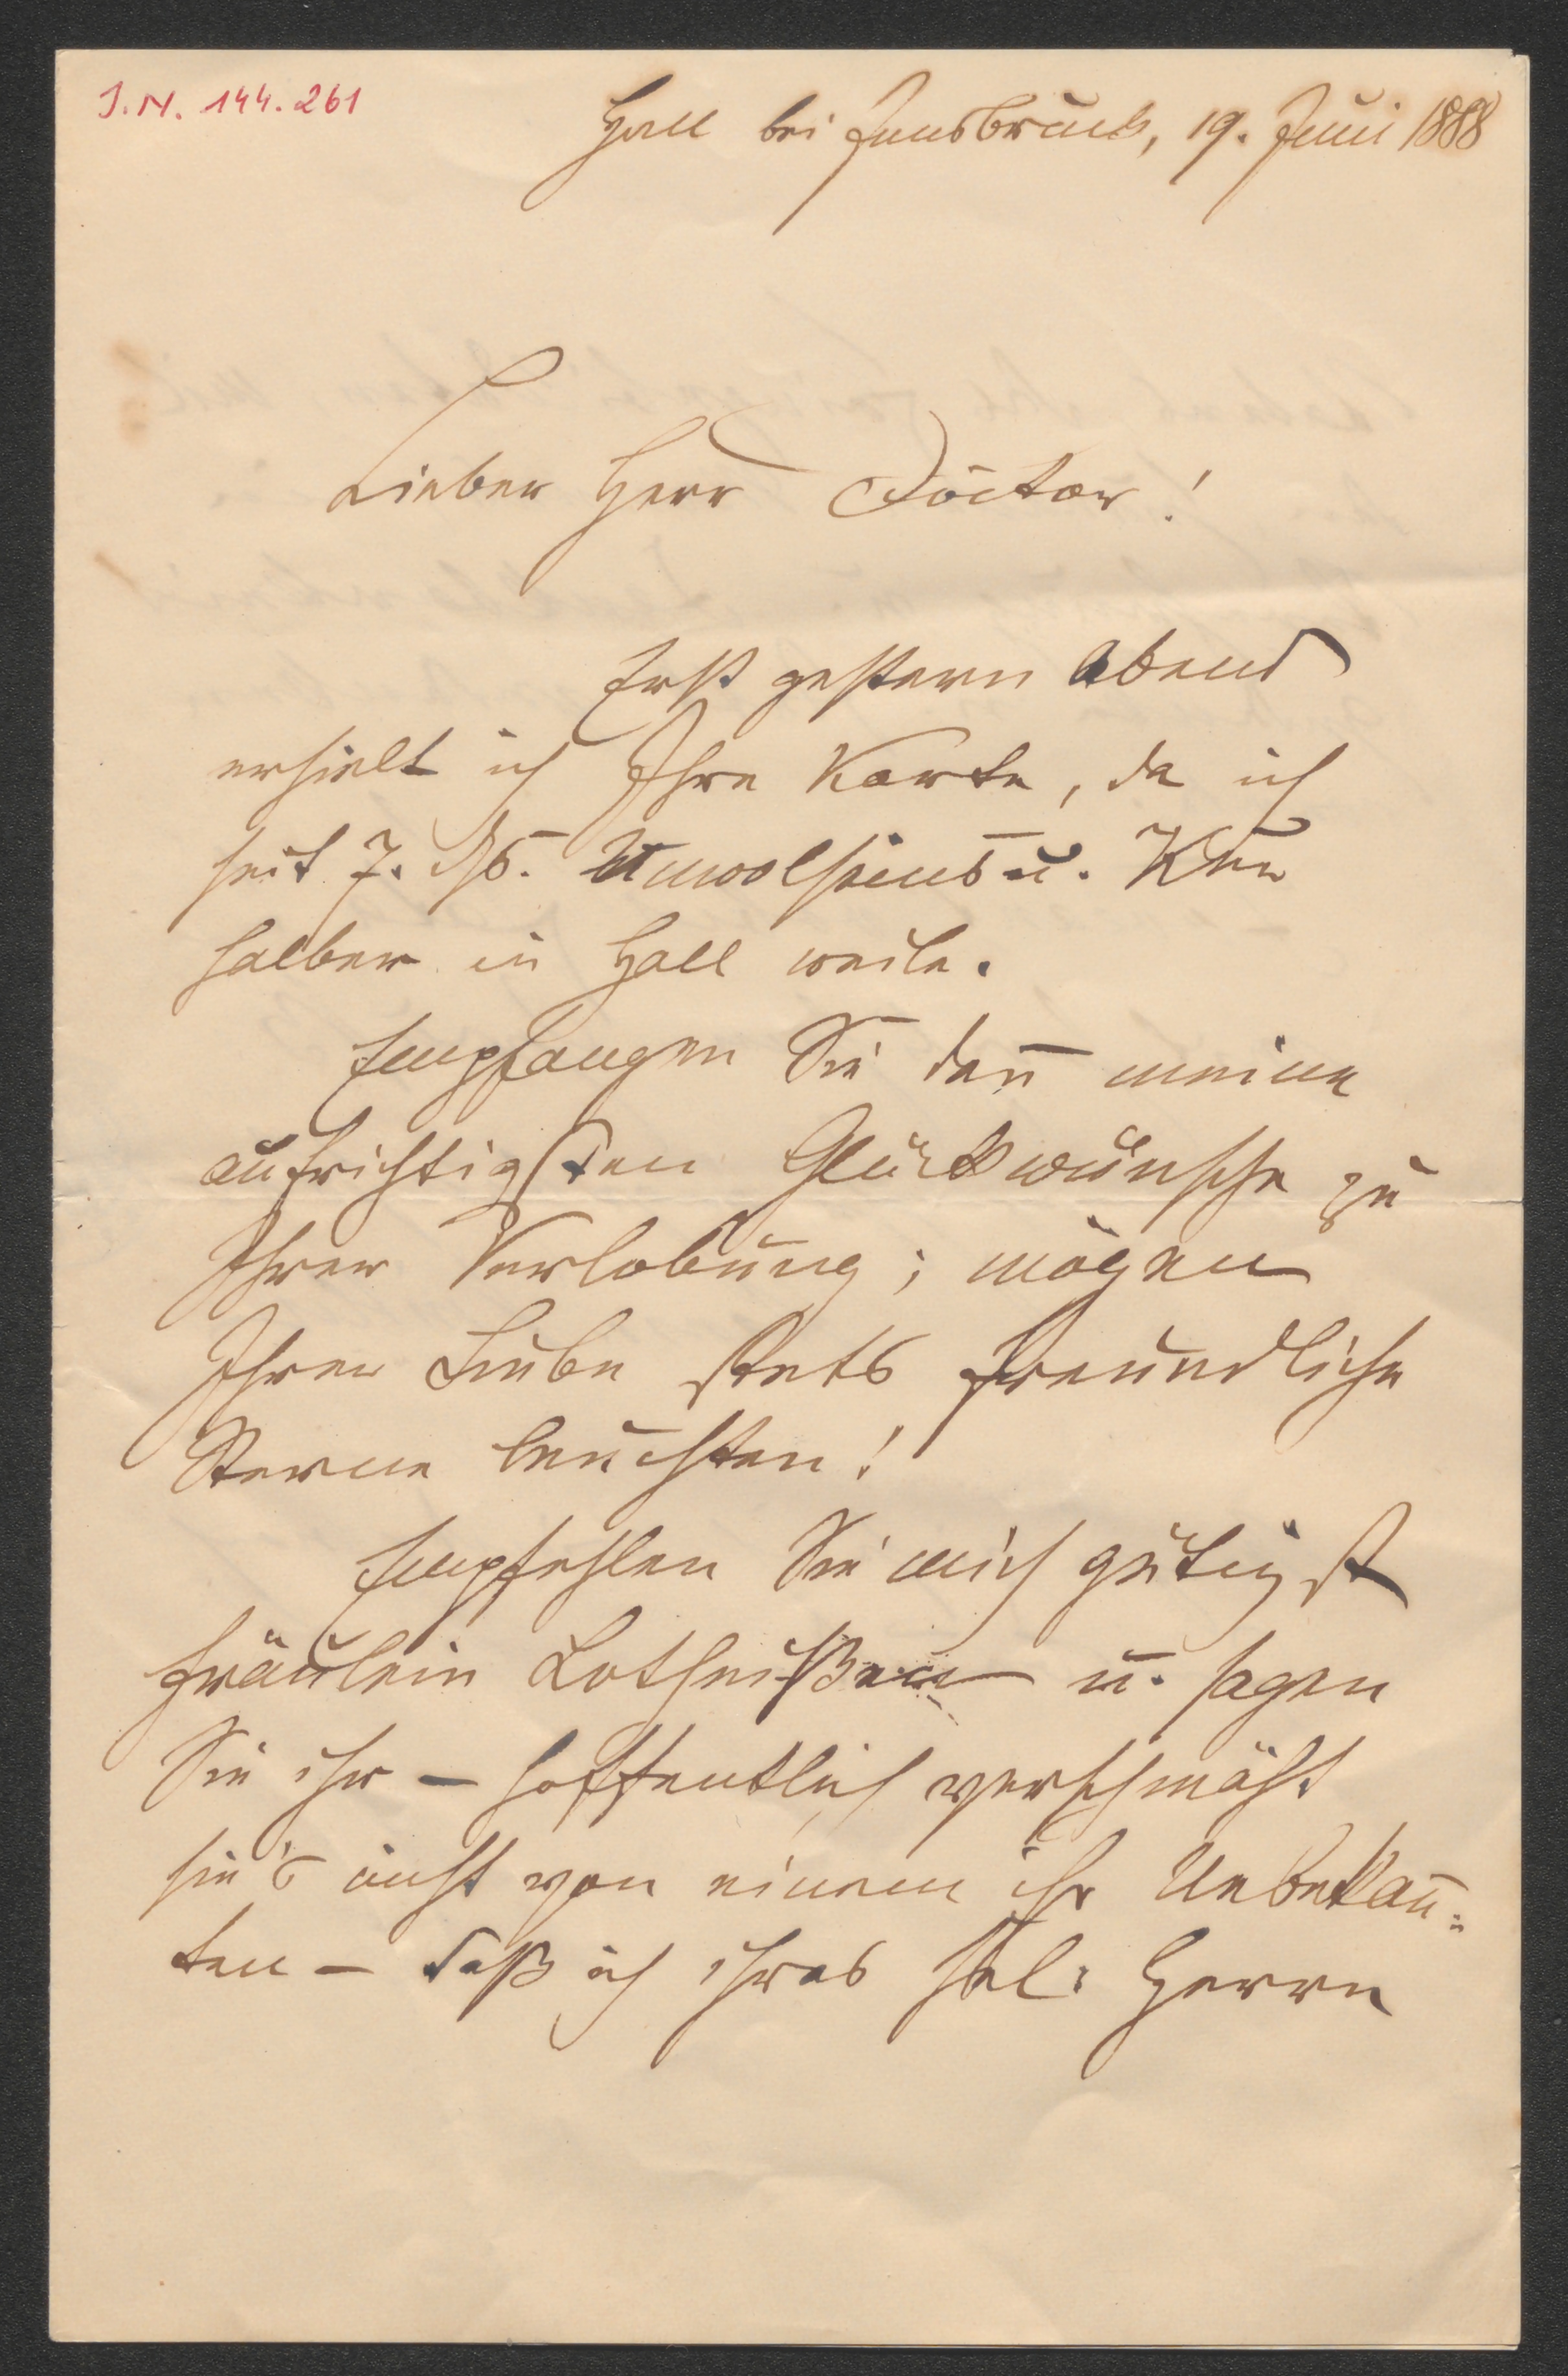 J.N. 144.261
Hall bei Innsbruck, 19. Juni 1888
Lieber Herr Doctor!
Erst gestern Abend
erhielt ich Ihre Karte, da ich
seit 7. ds. Unwolseins u. Kur
halber in Hall weile.
Empfangen Sie den̄ meine
aufrichtigsten Glückwünsche zu
Ihrer Verlobung; mögen
Ihrer Liebe stets freundliche
Sterne leuchten!
Empfehlen Sie mich gütigst
Fräulein Lotheißen u. sagen
Sie ihr – hoffentlich verschmäht
sie's nicht von einem ihr Unbekan̄=
ten – daß ich ihres sel. Herrn